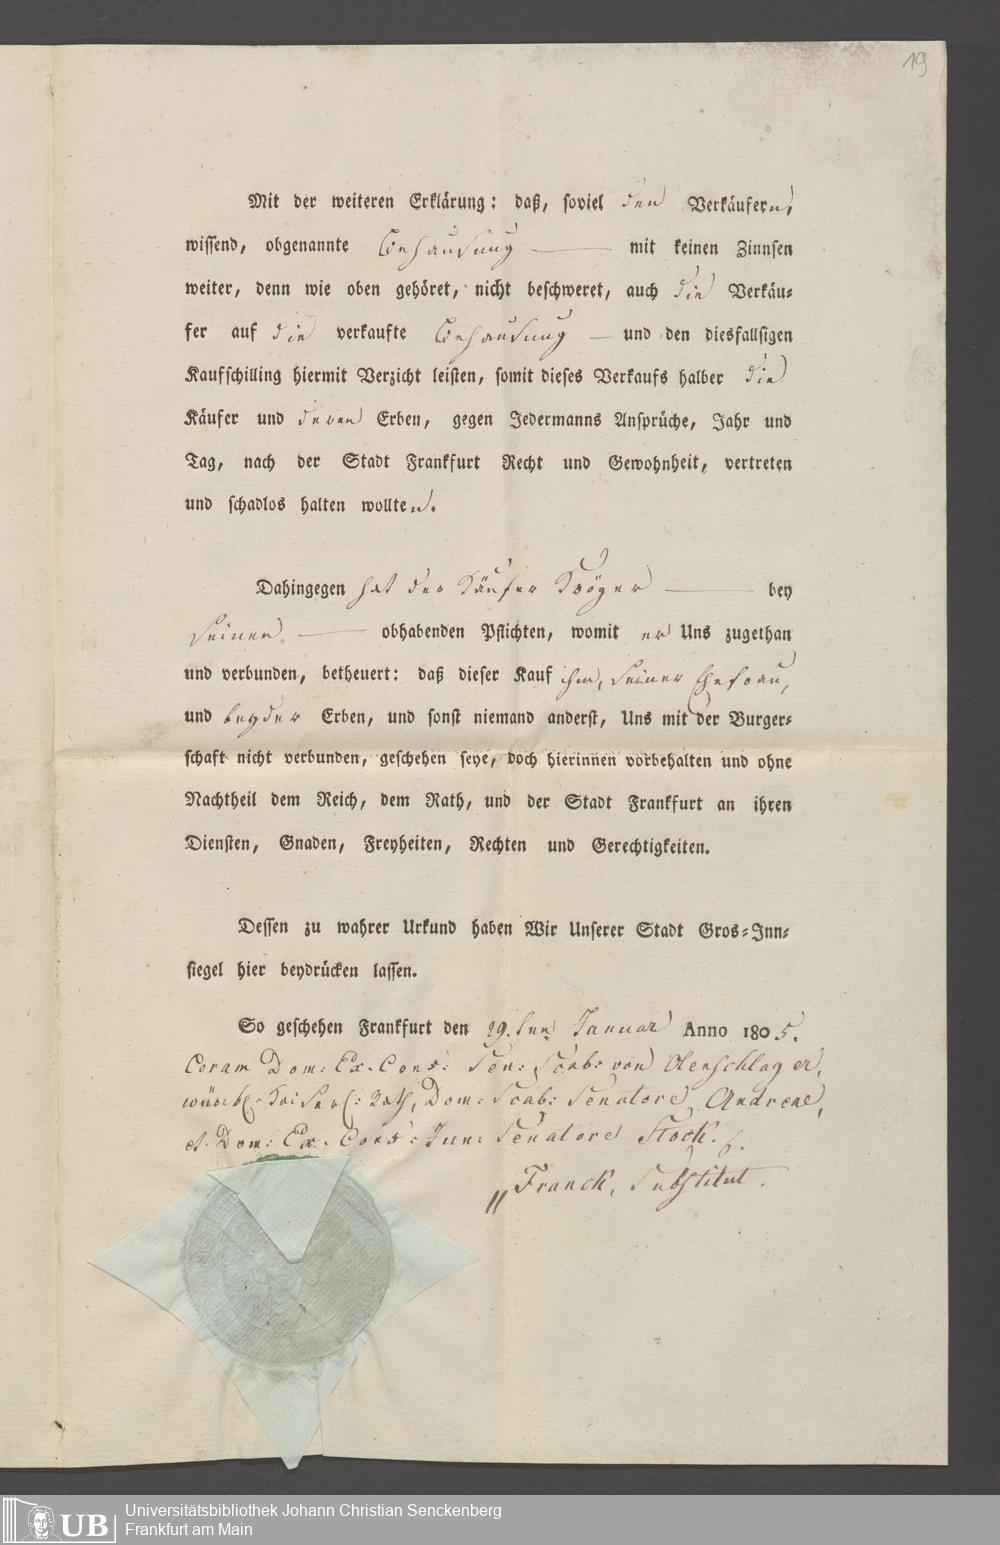 19
Mit der weiteren Erklärung: daß, soviel den Verkäufern,
wissend, obgenannte Behausung — mit keinen Zinnsen
weiter, denn wie oben gehöret, nicht beschweret, auch die Verkäu-
fer auf die verkaufte Behausung — und den diesfallsigen
Kaufschilling hiermit Verzicht leisten, somit dieses Verkaufs halber die
Käufer und deren Erben, gegen Jedermanns Ansprüche, Jahr und
Tag, nach der Stadt Frankfurt Recht und Gewohnheit, vertreten
und schadlos halten wollten.
Dahingegen hat der Käufer Kröger — bey
seinen — obhabenden Pflichten, womit er Uns zugethan
und verbunden, betheuert: daß dieser Kauf ihm, seiner Ehefrau,
und beyder Erben, und sonst niemand anderst, Uns mit der Burger-
schaft nicht verbunden, geschehen seye, doch hierinnen vorbehalten und ohne
Nachtheil dem Reich, dem Rath, und der Stadt Frankfurt an ihren
Diensten, Gnaden, Freyheiten, Rechten und Gerechtigkeiten.
Dessen zu wahrer Urkund haben Wir Unserer Stadt Gros-Inn-
siegel hier beydrücken lassen.
So geschehen Frankfurt den 29.ten Januar Anno 1805.
Coram Dom: Ex. Cons: Sen: Scab: von Olenschlager,
würkl: Kaiserl: Rath, Dom: Scab: Senatore Andreae,
et Dom: Ex. Cons: Jun: Senatore Stock.
Franck, Substitut.
UB
Universitätsbibliothek Johann Christian Senckenberg
Frankfurt am Main